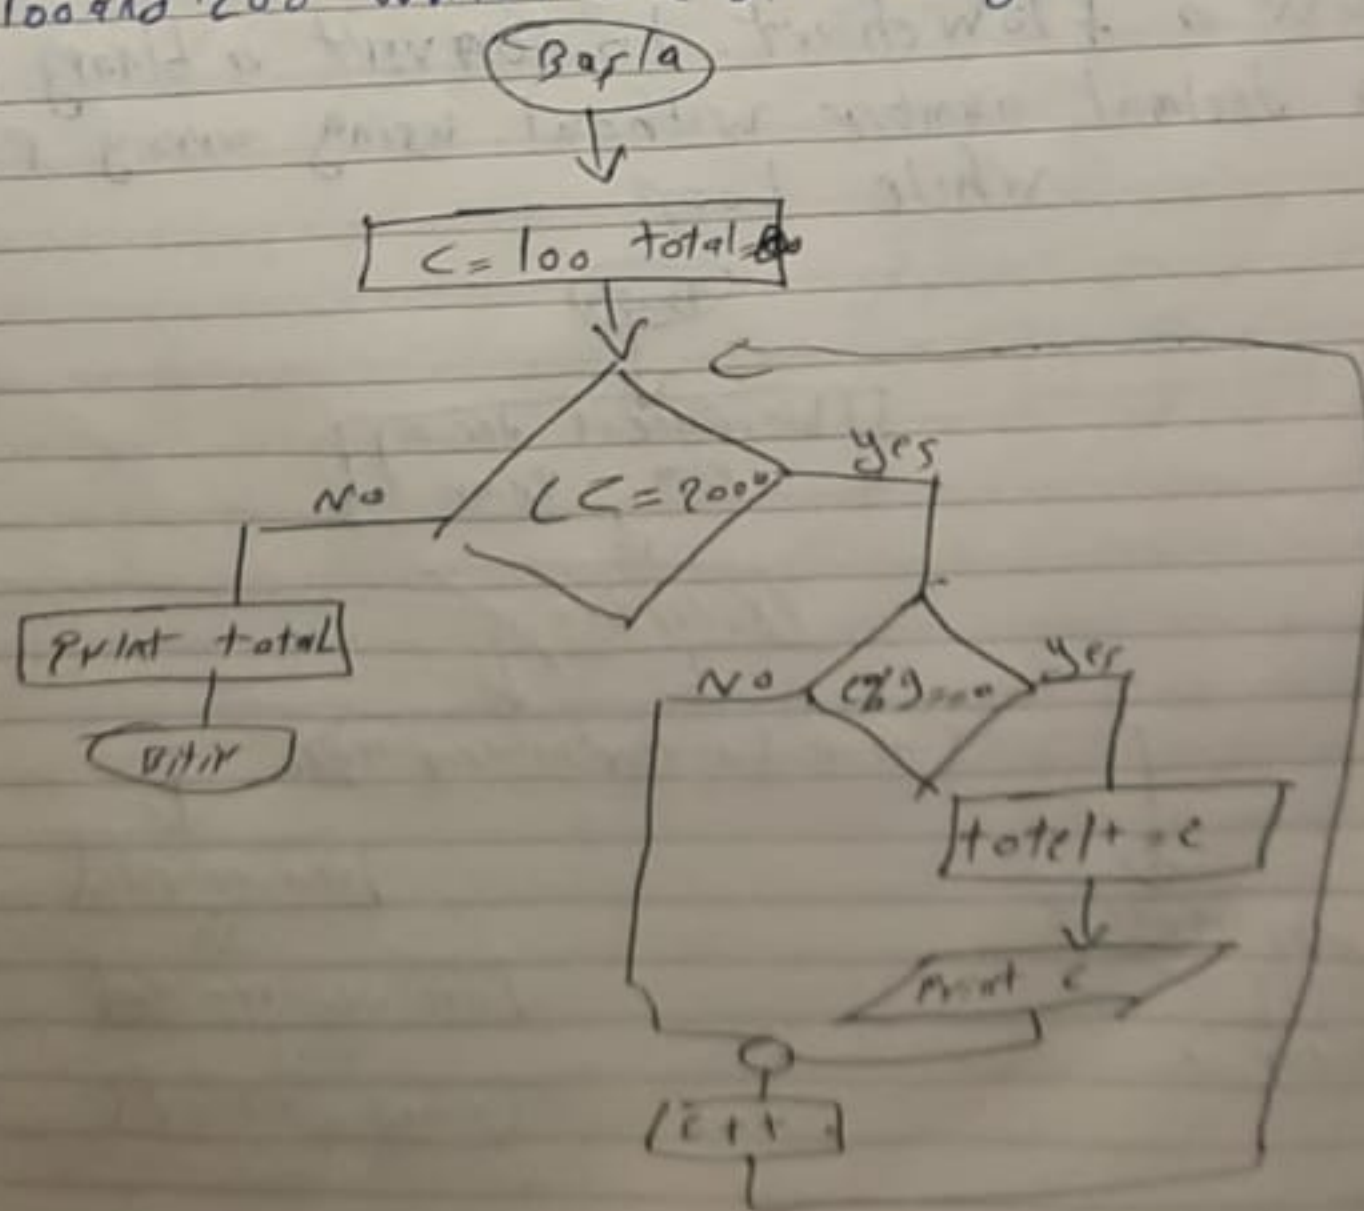 100 and 200
Başla
C = 100 total=
C<=200
Yes
No
Print total
Bitir
No
c%9==0
Yes
total+=c
Print c
c++